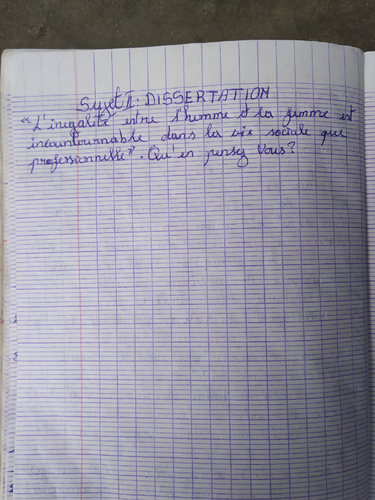 Sujet II : DISSERTATION
« L'inégalité entre l'homme et la femme est
incountournable dans la vie sociale que
professionnelle ». Qu'en pensez vous ?